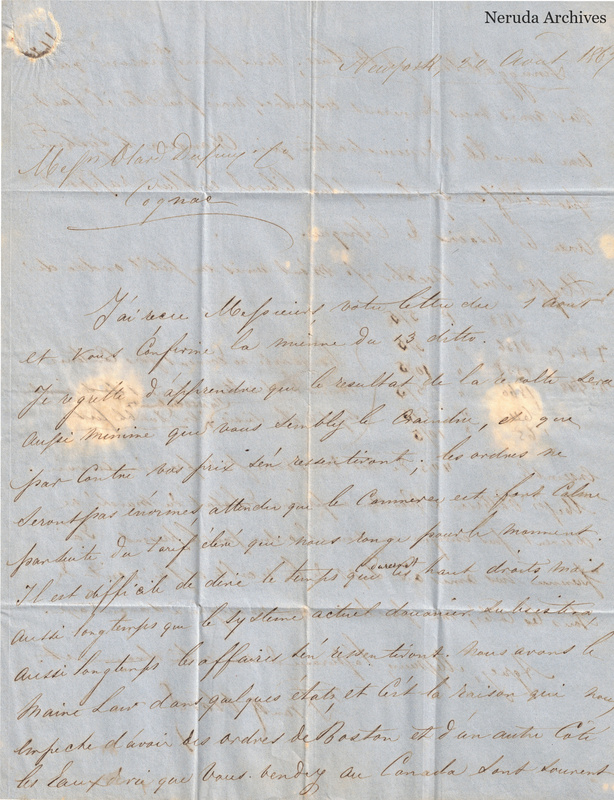 Neruda Archives
Newyork, 20 Août 186
Messrs Otard Dupuy & Co
Cognac
J'ai reçu Messieurs votre lettre du 1 Août
et vous confirme la mienne du 13 ditto.
Je regrette d'apprendre que le resultat de la recolte sera
aussi minime que vous semblez le craindre, et que
par contre vos prix s'en ressentiront; les ordres ne
seront pas énormes, attendu que le Commerce est fort Calme
par suite du tarif élévé qui nous ronge pour le moment.
Il est difficile de dire le temps que dureront les haut droits, mais
aussi longtemps que le systeme actuel douanier subsistera,
aussi longtemps les affaires s'en ressentiront. Nous avons le
Maine Law dans quelques états, et c'est la raison qui nous
empeche d'avoir des ordres de Boston et d'un autre Côté
les Eaux de vie que vous vendez au Canada sont souvent